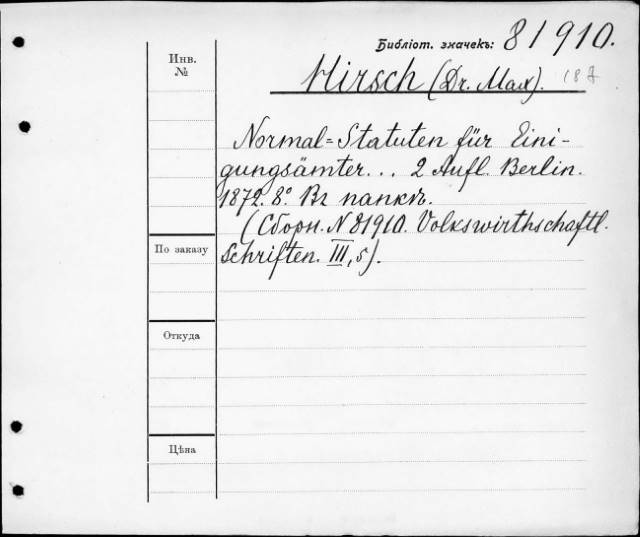 Библіот. значекъ: 81910.
Инв.
№
Hirsch (Dr. Max).
Normal=Statuten für Eini-
gungsämter... 2 Aufl. Berlin.
1872. 8º. Въ папкѣ.
(Сборн. N 81910. Volkswirthschaftl.
Schriften. III, 5).
По заказу
Откуда
Цѣна